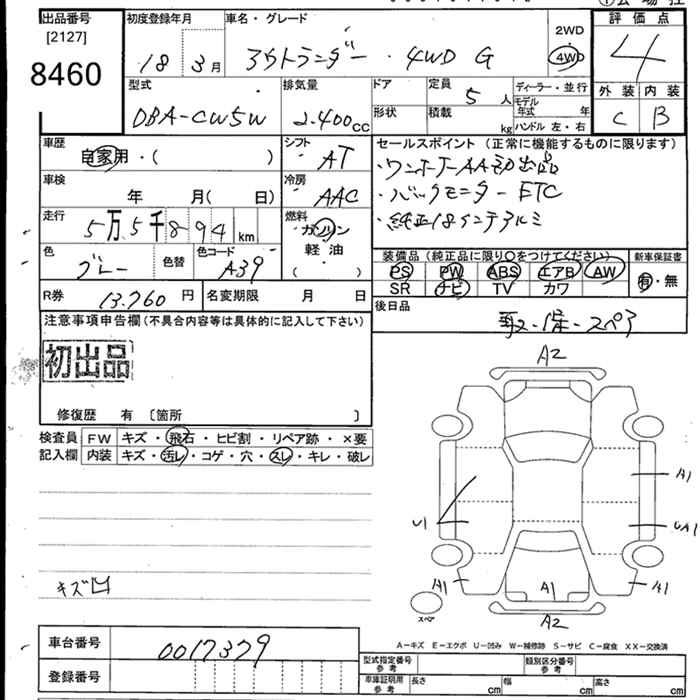 出品番号
[2127]
8460
初度登録年月
18 年 3 月
車名・グレード
アウトランダー・4WD G
2WD
4WD
評価点
4
外装 内装
C B
型式
DBA-CW5W
排気量
2.400cc
ドア
形状
定員
5人
積載
kg
ディーラー・並行
モデル年式 年
ハンドル 左・右
車歴
自家用・( )
シフト
AT
車検
年 月( 日)
冷房
AAC
走行
5万5千894km
燃料
ガソリン
軽油
( )
色
グレー
色替
色コード
A39
R券
13.760円
名変期限 月 日
セールスポイント(正常に機能するものに限ります)
・ワンオーナーAA初出品
・バックモニターETC
・純正18インチアルミ
装備品(純正品に限り〇をつけてください)
新車保証書
PS PW ABS エアB AW
有・無
SR ナビ TV カワ
後日品
取・保・スペア
注意事項申告欄(不具合内容等は具体的に記入して下さい)
初出品
修復歴 有〔箇所 〕
検査員
記入欄
FW キズ・飛石・ヒビ割・リペア跡・×要
内装 キズ・汚レ・コゲ・穴・スレ・キレ・破レ
キズ凹
A2
A1
U1
UA1
A1
A1
A1
スペア
A2
A-キズ E-エクボ U-凹み W-補修跡 S-サビ C-腐食 XX-交換済
車台番号
0017379
登録番号
型式指定番号
参考
類別区分番号
参考
車庫証明用
参考
長さ cm 幅 cm 高さ cm